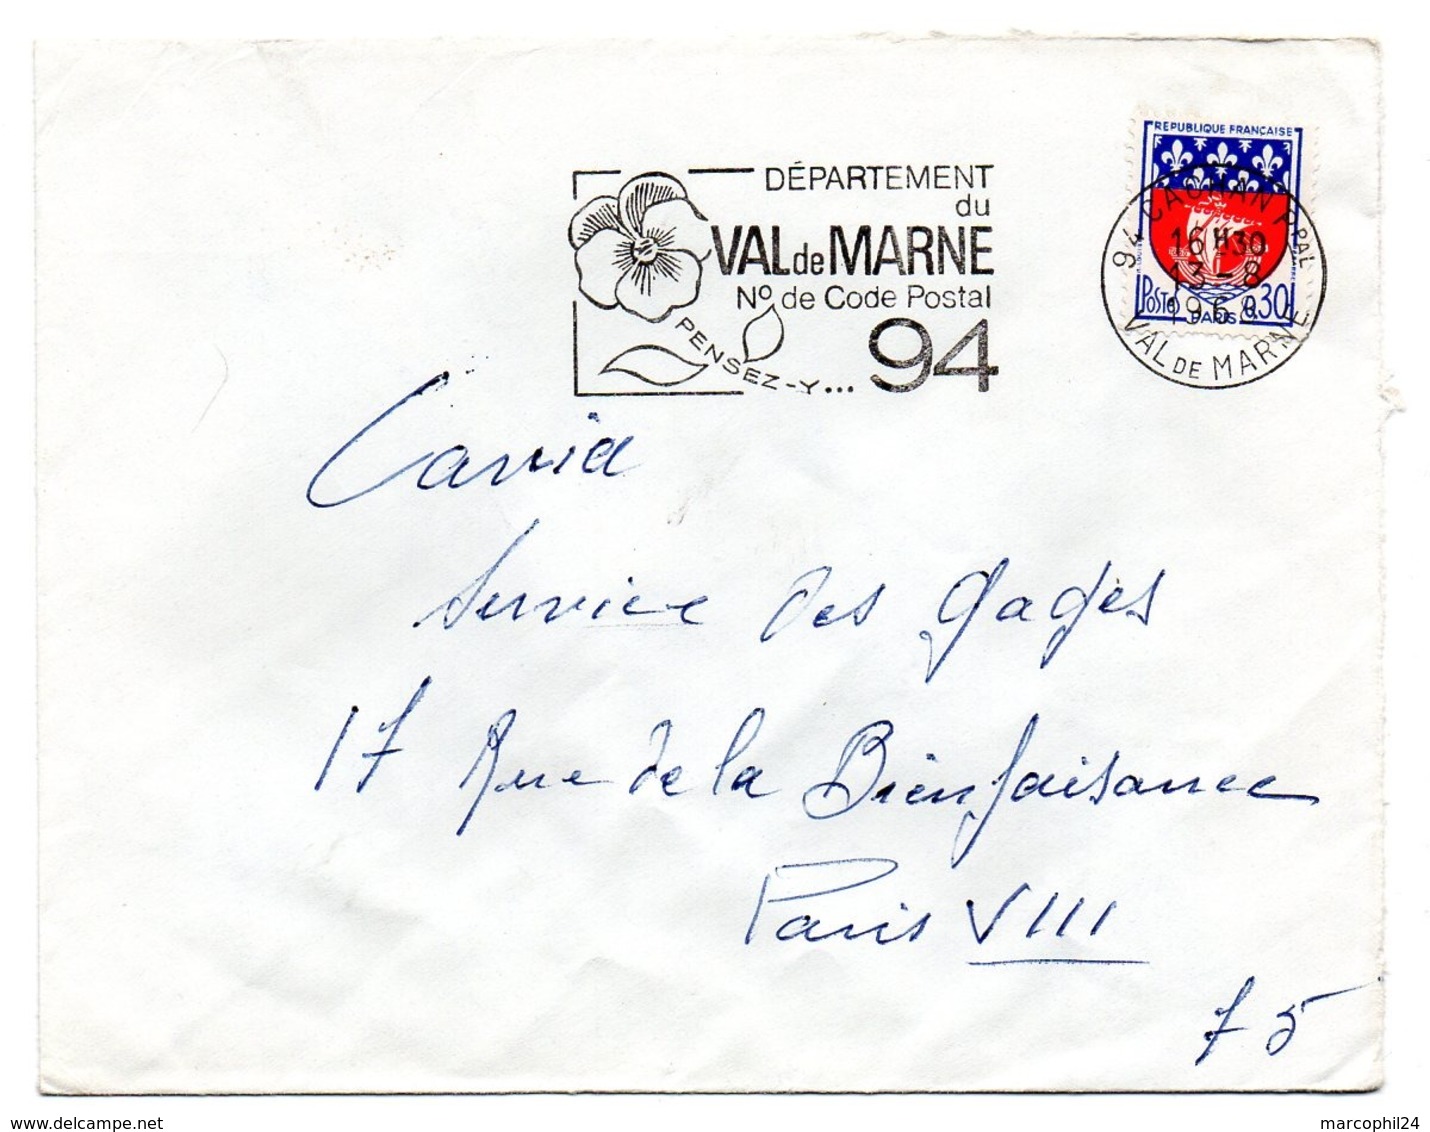 REPUBLIQUE FRANÇAISE
DÉPARTEMENT
du
VAL de MARNE
Nº de Code Postal
94
PENSEZ-Y...
94 CACHAN PPAL
16H30
13-8
1968
VAL DE MARNE
POSTES
0,30
PARIS
Carvia
Service des gages
17 Rue de la Bienfaisance
Paris VIII
75
www.delcampe.net
marcophil24